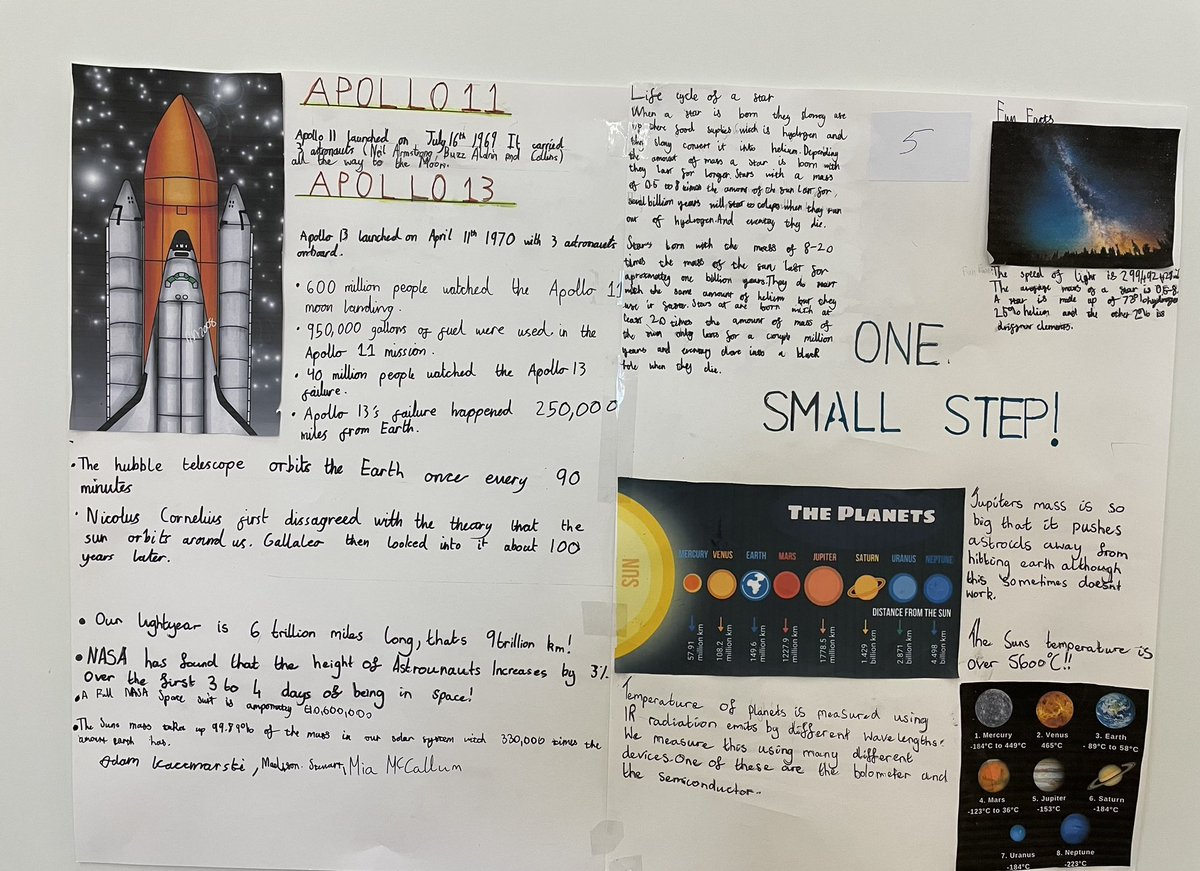 APOLLO 11
Apollo 11 launched on July 16th 1969 It carried
3 astronauts (Neil Armstrong, Buzz Aldrin and Collins)
all the way to the Moon.
APOLLO 13
Apollo 13 launched on April 11th 1970 with 3 astronauts
onboard.
• 600 million people watched the Apollo 11
moon landing.
• 950,000 gallons of fuel were used in the
Apollo 11 mission.
• 40 million people watched the Apollo 13
failure.
• Apollo 13's failure happened 250,000
miles from Earth.
• The hubble telescope orbits the Earth once every 90
minutes
• Nicolus Cornelius first dissagreed with the theory that the
sun orbits around us. Gallaleo then looked into it about 100
years later.
• Our lightyear is 6 trillion miles long, thats 9trillion km!
• NASA has found that the height of Astrounauts Increases by 3%
Over the first 3 to 4 days of being in space!
• A Full NASA Space suit is
• The Suns mass takes up of the mass in our solar system 330,000 times the
amount earth has.
Adam Kaczmarski, Madison Stewart, Mia McCallum
Life cycle of a star
When a star is born they use
food which is hydrogen and
convert it into helium. Depending
the amount of mass a star is born with
they last for longer. Stars with a mass
of 0.5 to 8 times the of the sun last for
billion years will start to when they run
out of hydrogen. And they die.
Stars born with the mass of 8-20
times the mass of the sun last for
one billion years. They do start
with the same amount of helium but they
use it faster. Stars at are born with at
least 20 times the amount of mass of
the sun only last for a couple million
years and into a black
hole when they die.
5
Fun Facts
The speed of light is
The average mass of a star is 0.5-8
A star is made up of 73% hydrogen
25% helium and the other 2% is
elements.
ONE
SMALL STEP!
THE PLANETS
SUN
MERCURY VENUS EARTH MARS JUPITER SATURN URANUS NEPTUNE
DISTANCE FROM THE SUN
57.91 million km
108.2 million km
149.6 million km
1227.9 million km
1778.5 million km
1.429 billion km
2.871 billion km
4.498 billion km
Jupiters mass is so
big that it pushes
away from
hitting earth although
this sometimes doesnt
work.
The Suns temperature is
over 5600°C!!
Temperature of planets is measured using
IR radiation emits by different wavelengths.
We measure this using many different
devices. One of these are the bolometer and
the semiconductor.
1. Mercury
-184°C to 449°C
2. Venus
465°C
3. Earth
-89°C to 58°C
4. Mars
-123°C to 36°C
5. Jupiter
-153°C
6. Saturn
-184°C
7. Uranus
-184°C
8. Neptune
-223°C